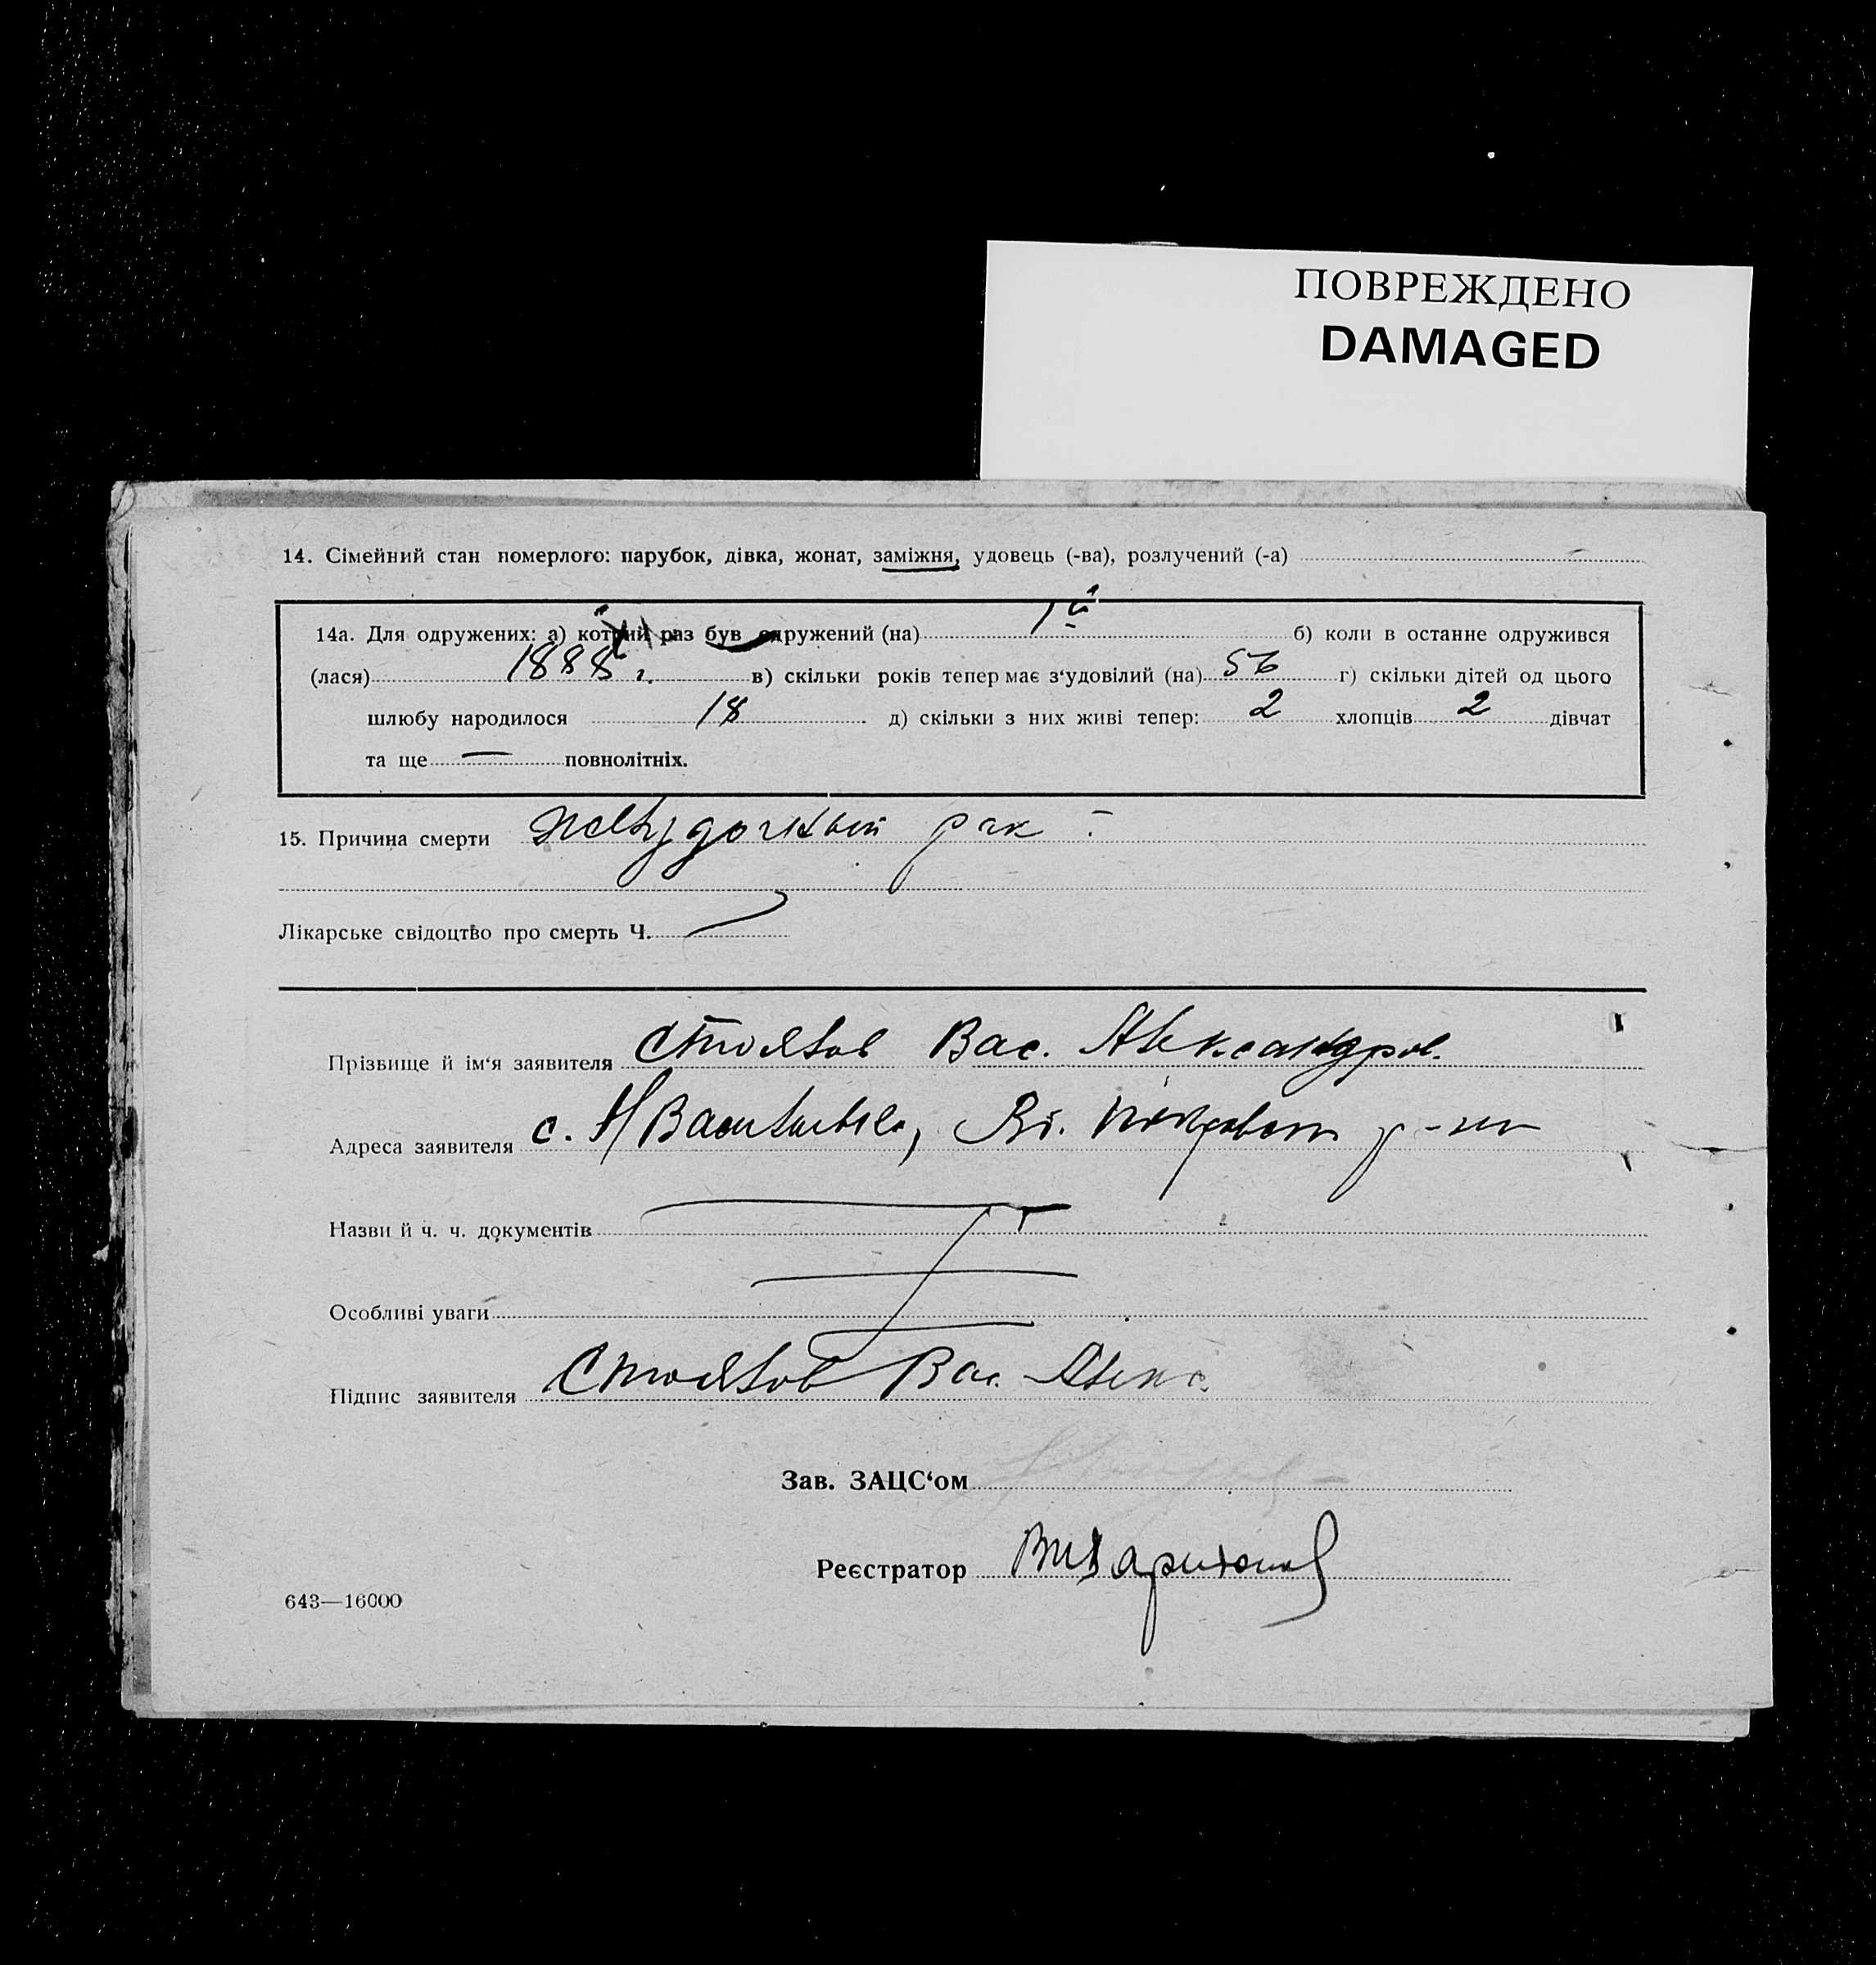 ПОВРЕЖДЕНО
DAMAGED
14. Сімейний стан померлого: парубок, дівка, жонат, заміжня, удовець (-ва), розлучений (-а)
14а. Для одружених: а) котрий раз був одружений (на) 1й б) коли в останне одружився
(лася) 1888 г. в) скільки років тепер має з‘удовілий (на) 56 г) скільки дітей од цього
шлюбу народилося 18 д) скільки з них живі тепер: 2 хлопців 2 дівчат
та ще — повнолітніх.
15. Причина смерти желудочный рак
Лікарське свідоцтво про смерть Ч.
Прізвище й ім‘я заявителя Вас. Александров.
Адреса заявителя с. Н р-на
Назви й ч. ч. документів
Особливі уваги
Підпис заявителя Вас. Алекс.
Зав. ЗАЦС‘ом
Реєстратор
643—16000